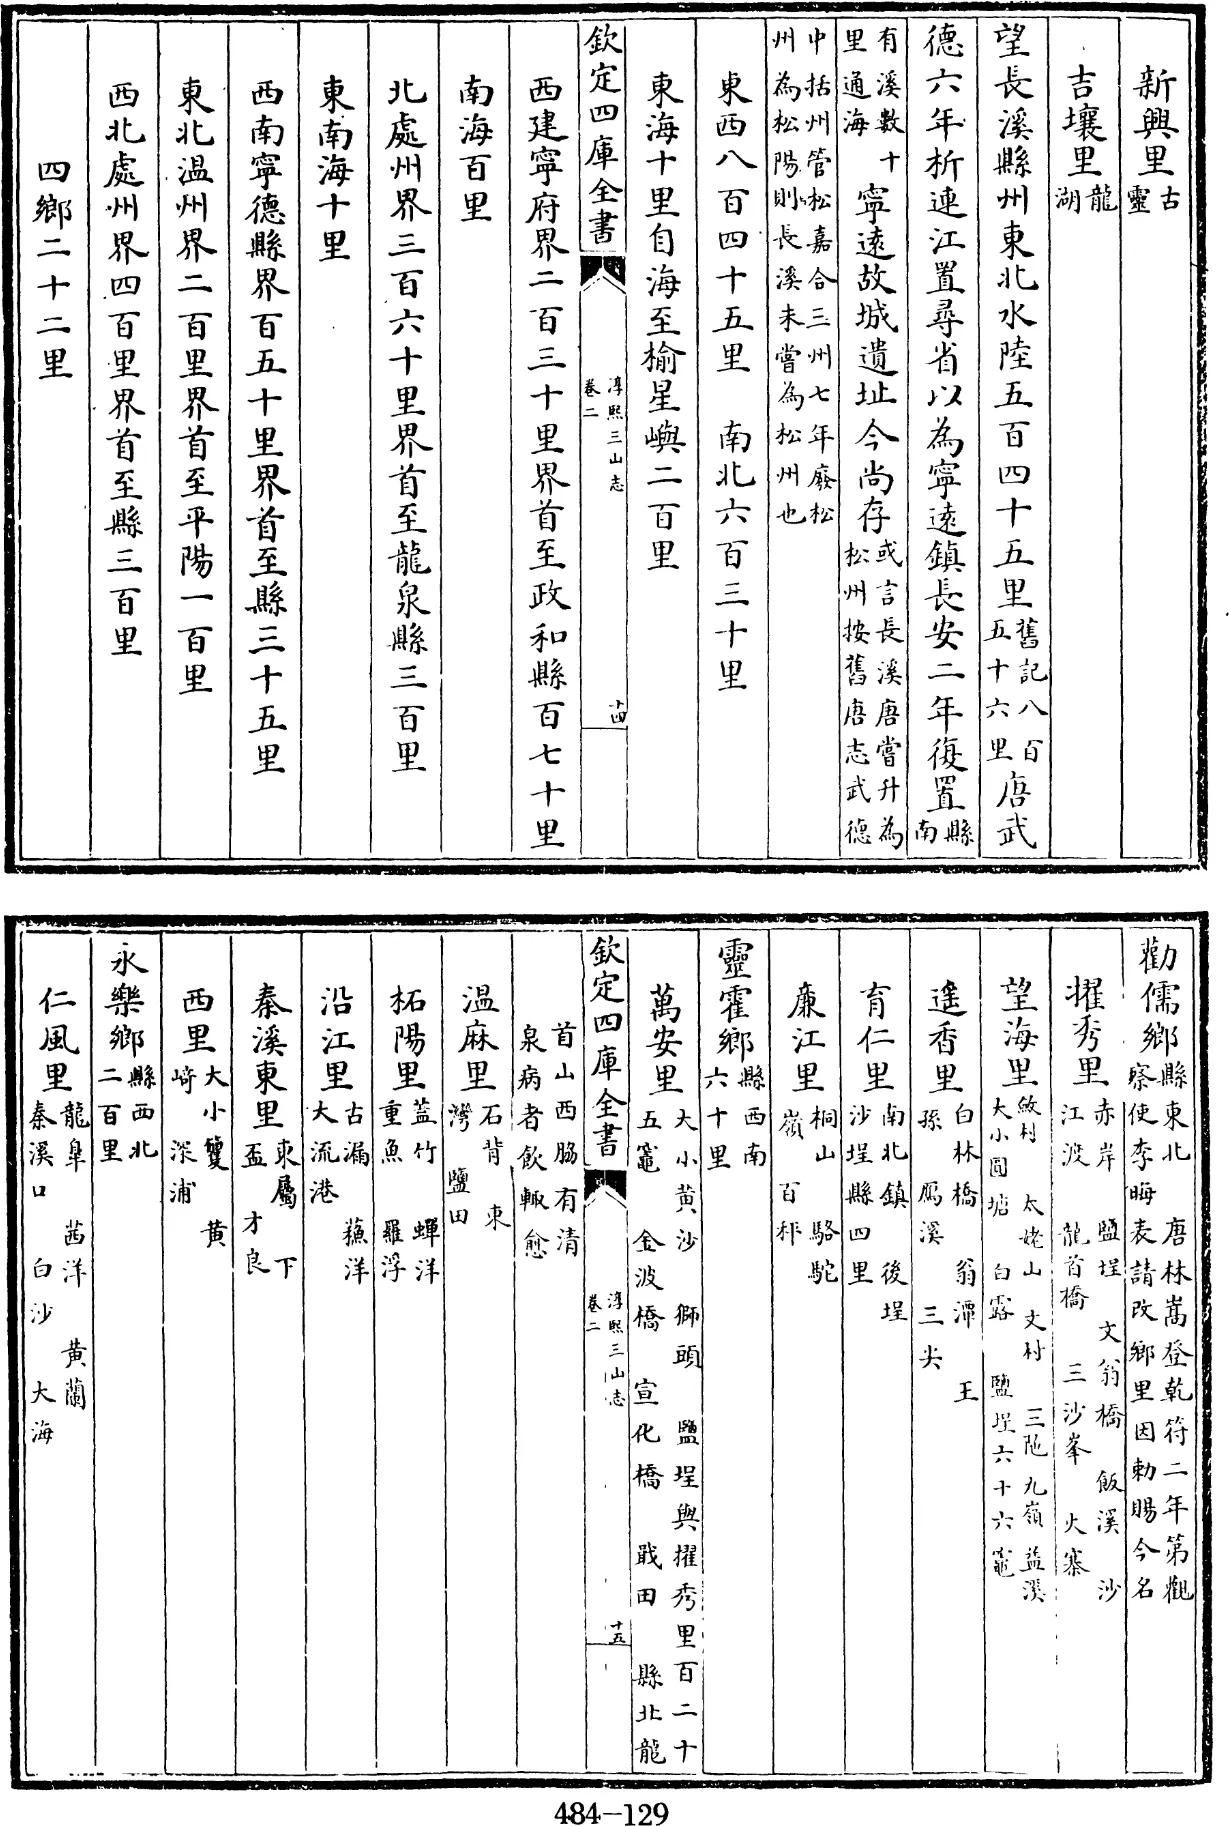 新興里古靈
吉壤里龍湖
望長溪縣州東北水陸五百四十五里舊記八百五十六里唐武
德六年析連江置尋省以為寧遠鎮長安二年復置縣南
有溪數十里通海寧遠故城遺址今尚存或言長溪唐嘗升為松州按舊唐志武德
中括州管松嘉合三州七年廢松州為松陽則長溪未嘗為松州也
東西八百四十五里 南北六百三十里
東海十里自海至榆星嶼二百里
欽定四庫全書 淳熙三山志卷二 十四
西建寧府界二百三十里界首至政和縣百七十里
南海百里
北處州界三百六十里界首至龍泉縣三百里
東南海十里
西南寧德縣界百五十里界首至縣三十五里
東北溫州界二百里界首至平陽一百里
西北處州界四百里界首至縣三百里
四鄉二十二里
勸儒鄉縣東北 唐林嵩登乾符二年第觀察使李晦表請改鄉里因勅賜今名
擢秀里赤岸 鹽埕 文翁橋 飯溪 沙江渡 龍首橋 三沙峯 火寨
望海里斂村 太姥山 文村 三陁九嶺益溪大小圓塘 白露 鹽埕六十六竈
遥香里白林橋 翁潭 王孫 鴈溪 三尖
育仁里南北鎮 後埕沙埕縣四里
廉江里桐山 駱駝嶺 百秤
靈霍鄉縣西南六十里
萬安里大小黃沙 獅頭 鹽埕與擢秀里百二十五竈 金波橋 宣化橋 戢田 縣北龍
首山西脇有清泉病者飲輙愈
欽定四庫全書 淳熙三山志卷二 十五
溫麻里石背 東灣 鹽田
柘陽里蓋竹 蟬洋重魚 羅浮
沿江里古漏 蘓洋大流港
秦溪東里東屬 下盃 才良
西里大小籆 黃崎 深浦
永樂鄉縣西北二百里
仁風里龍臯 茜洋 黃蘭秦溪口 白沙 大海
484-129